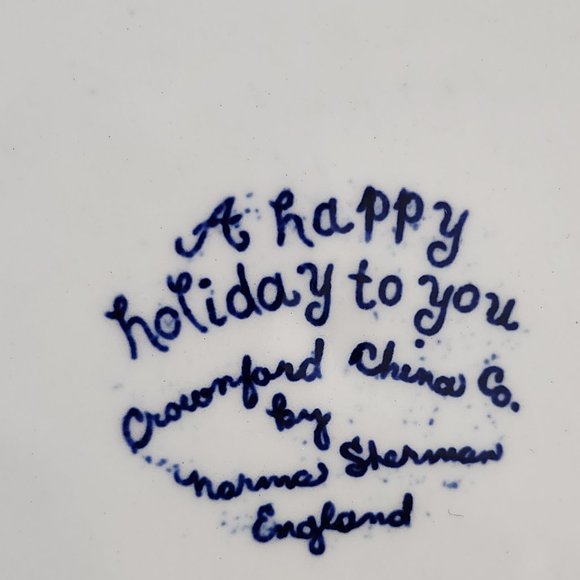 A happy
holiday to you
Crownford China Co.
by
Norma Sherman
England